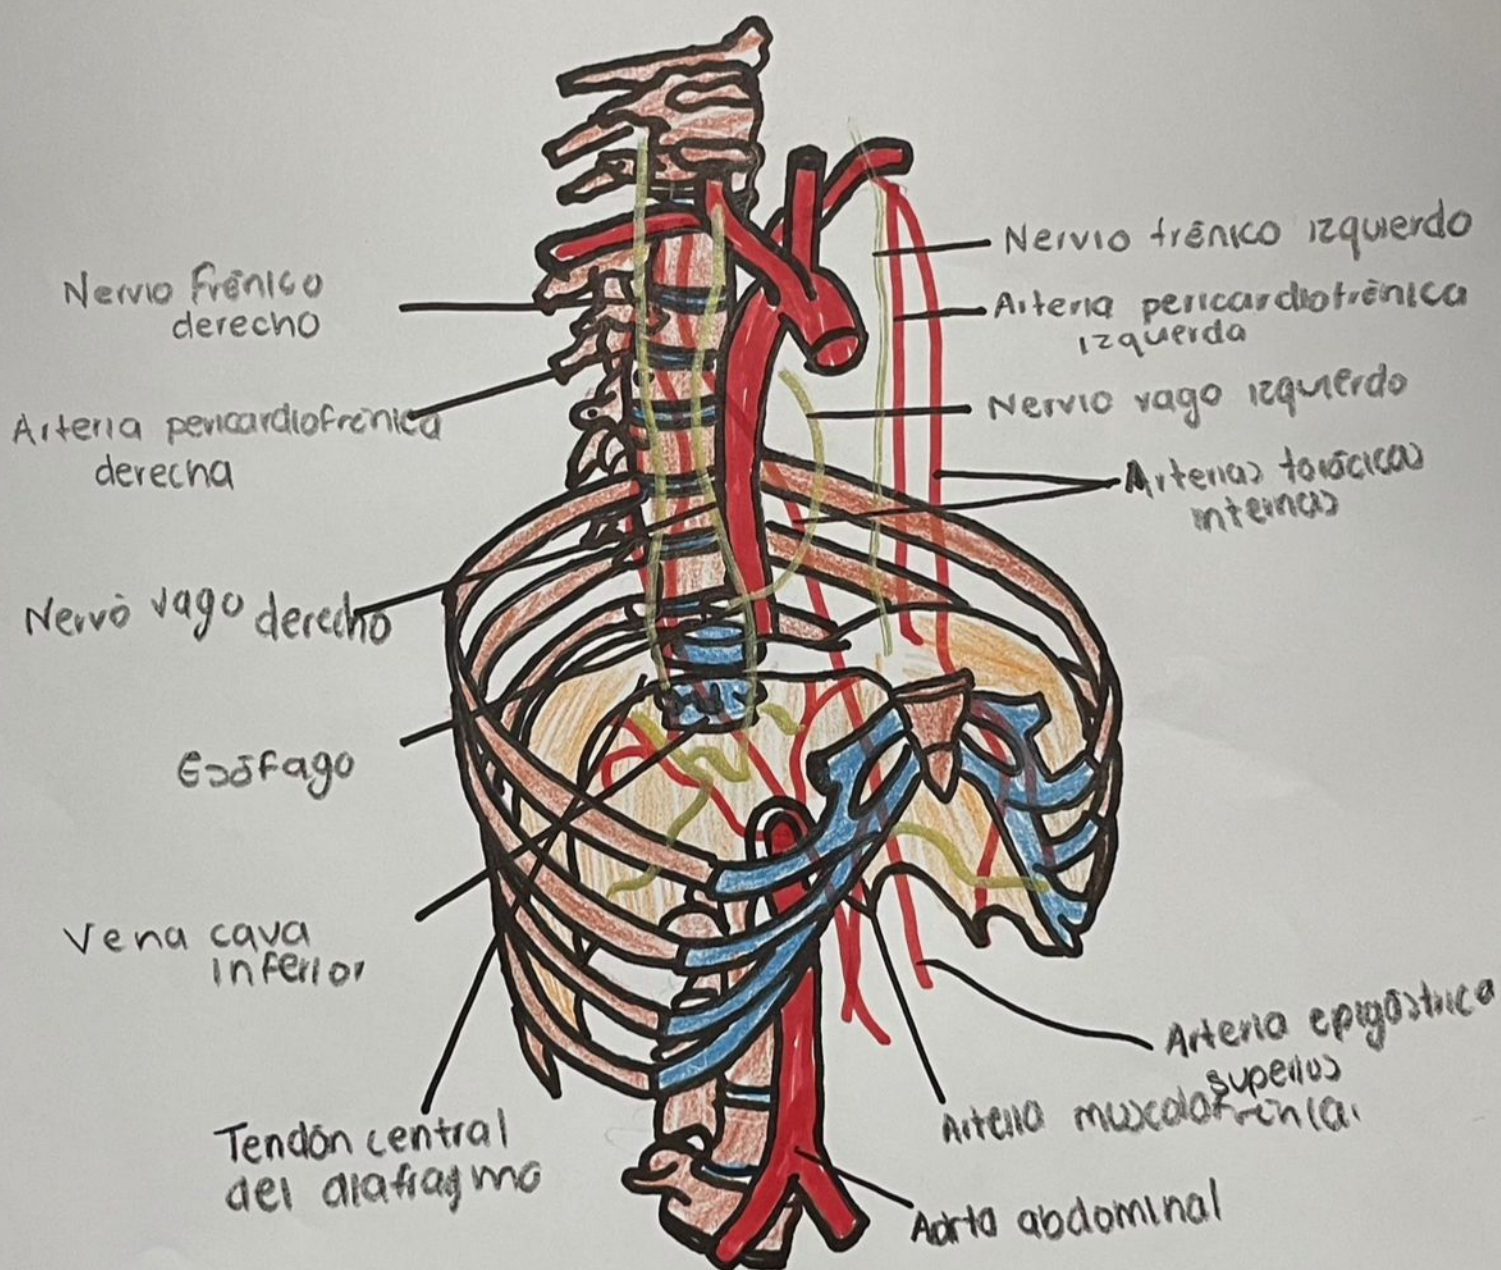 Nervio Frénico
derecho
Arteria pericardiofrénica
derecha
Nervo vago derecho
Esófago
Vena cava
inferior
Tendón central
del diafragma
Nervio frénico izquierdo
Arteria pericardiofrénica
izquierda
Nervio vago izquierdo
Arterias torácicas
internas
Arteria epigástrica
superios
Arteria muscolofrénica
Aorta abdominal